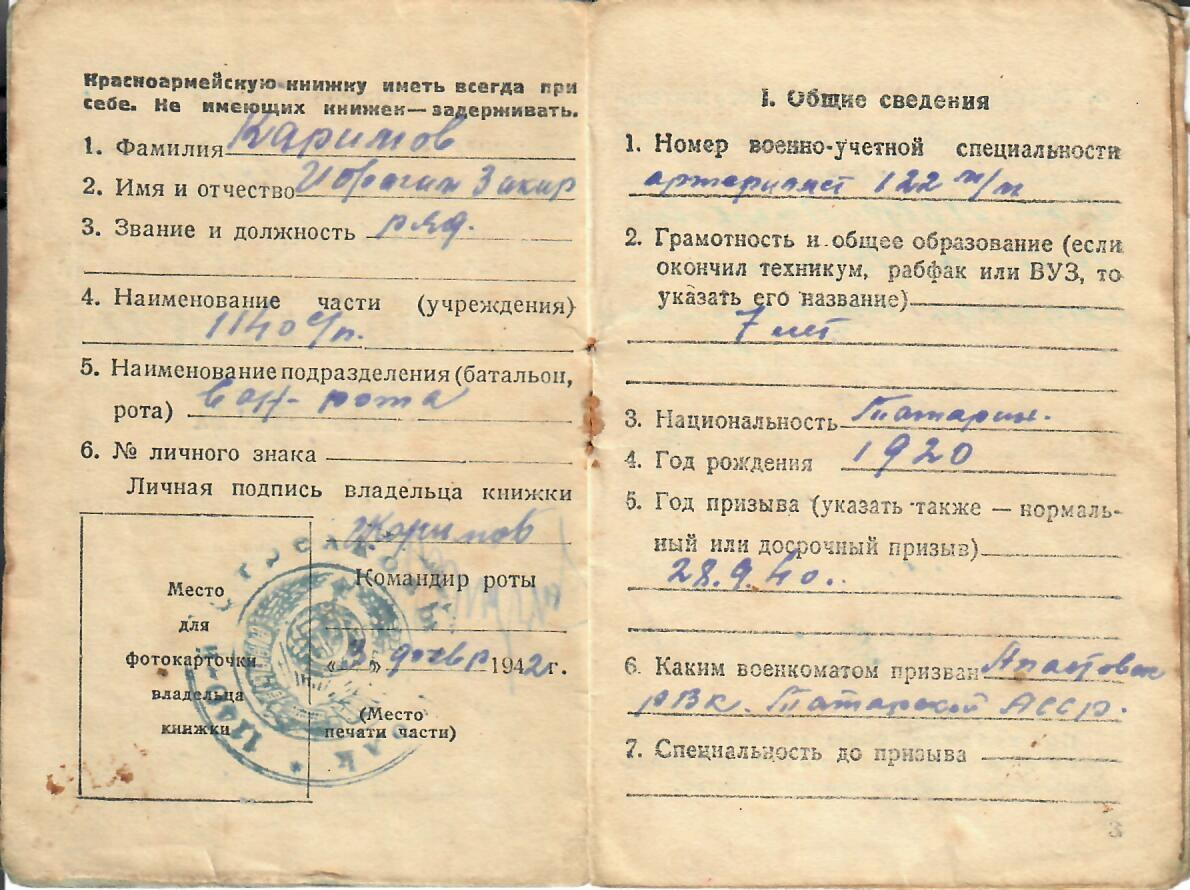 Красноармейскую книжку иметь всегда при
себе. Не имеющих книжек—задерживать.
1. Фамилия Каримов
2. Имя и отчество Ибрагим Закир
3. Звание и должность ряд.
4. Наименование части (учреждения)
1140 с/п.
5. Наименование подразделения (батальон,
рота) рота
6. № личного знака
Личная подпись владельца книжки
Каримов
Командир роты
Место
для
фотокарточки
владельца
книжки
«3» 1942 г.
(Место
печати части)
I. Общие сведения
1. Номер военно-учетной специальности
артерилист 122 м/м
2. Грамотность и общее образование (если
окончил техникум, рабфак или ВУЗ, то
указать его название)
7 лет
3. Национальность Татарин.
4. Год рождения 1920
5. Год призыва (указать также — нормаль-
ный или досрочный призыв)
28.9.40..
6. Каким военкоматом призван Апастовск
РВК. Татарской АССР.
7. Специальность до призыва
3